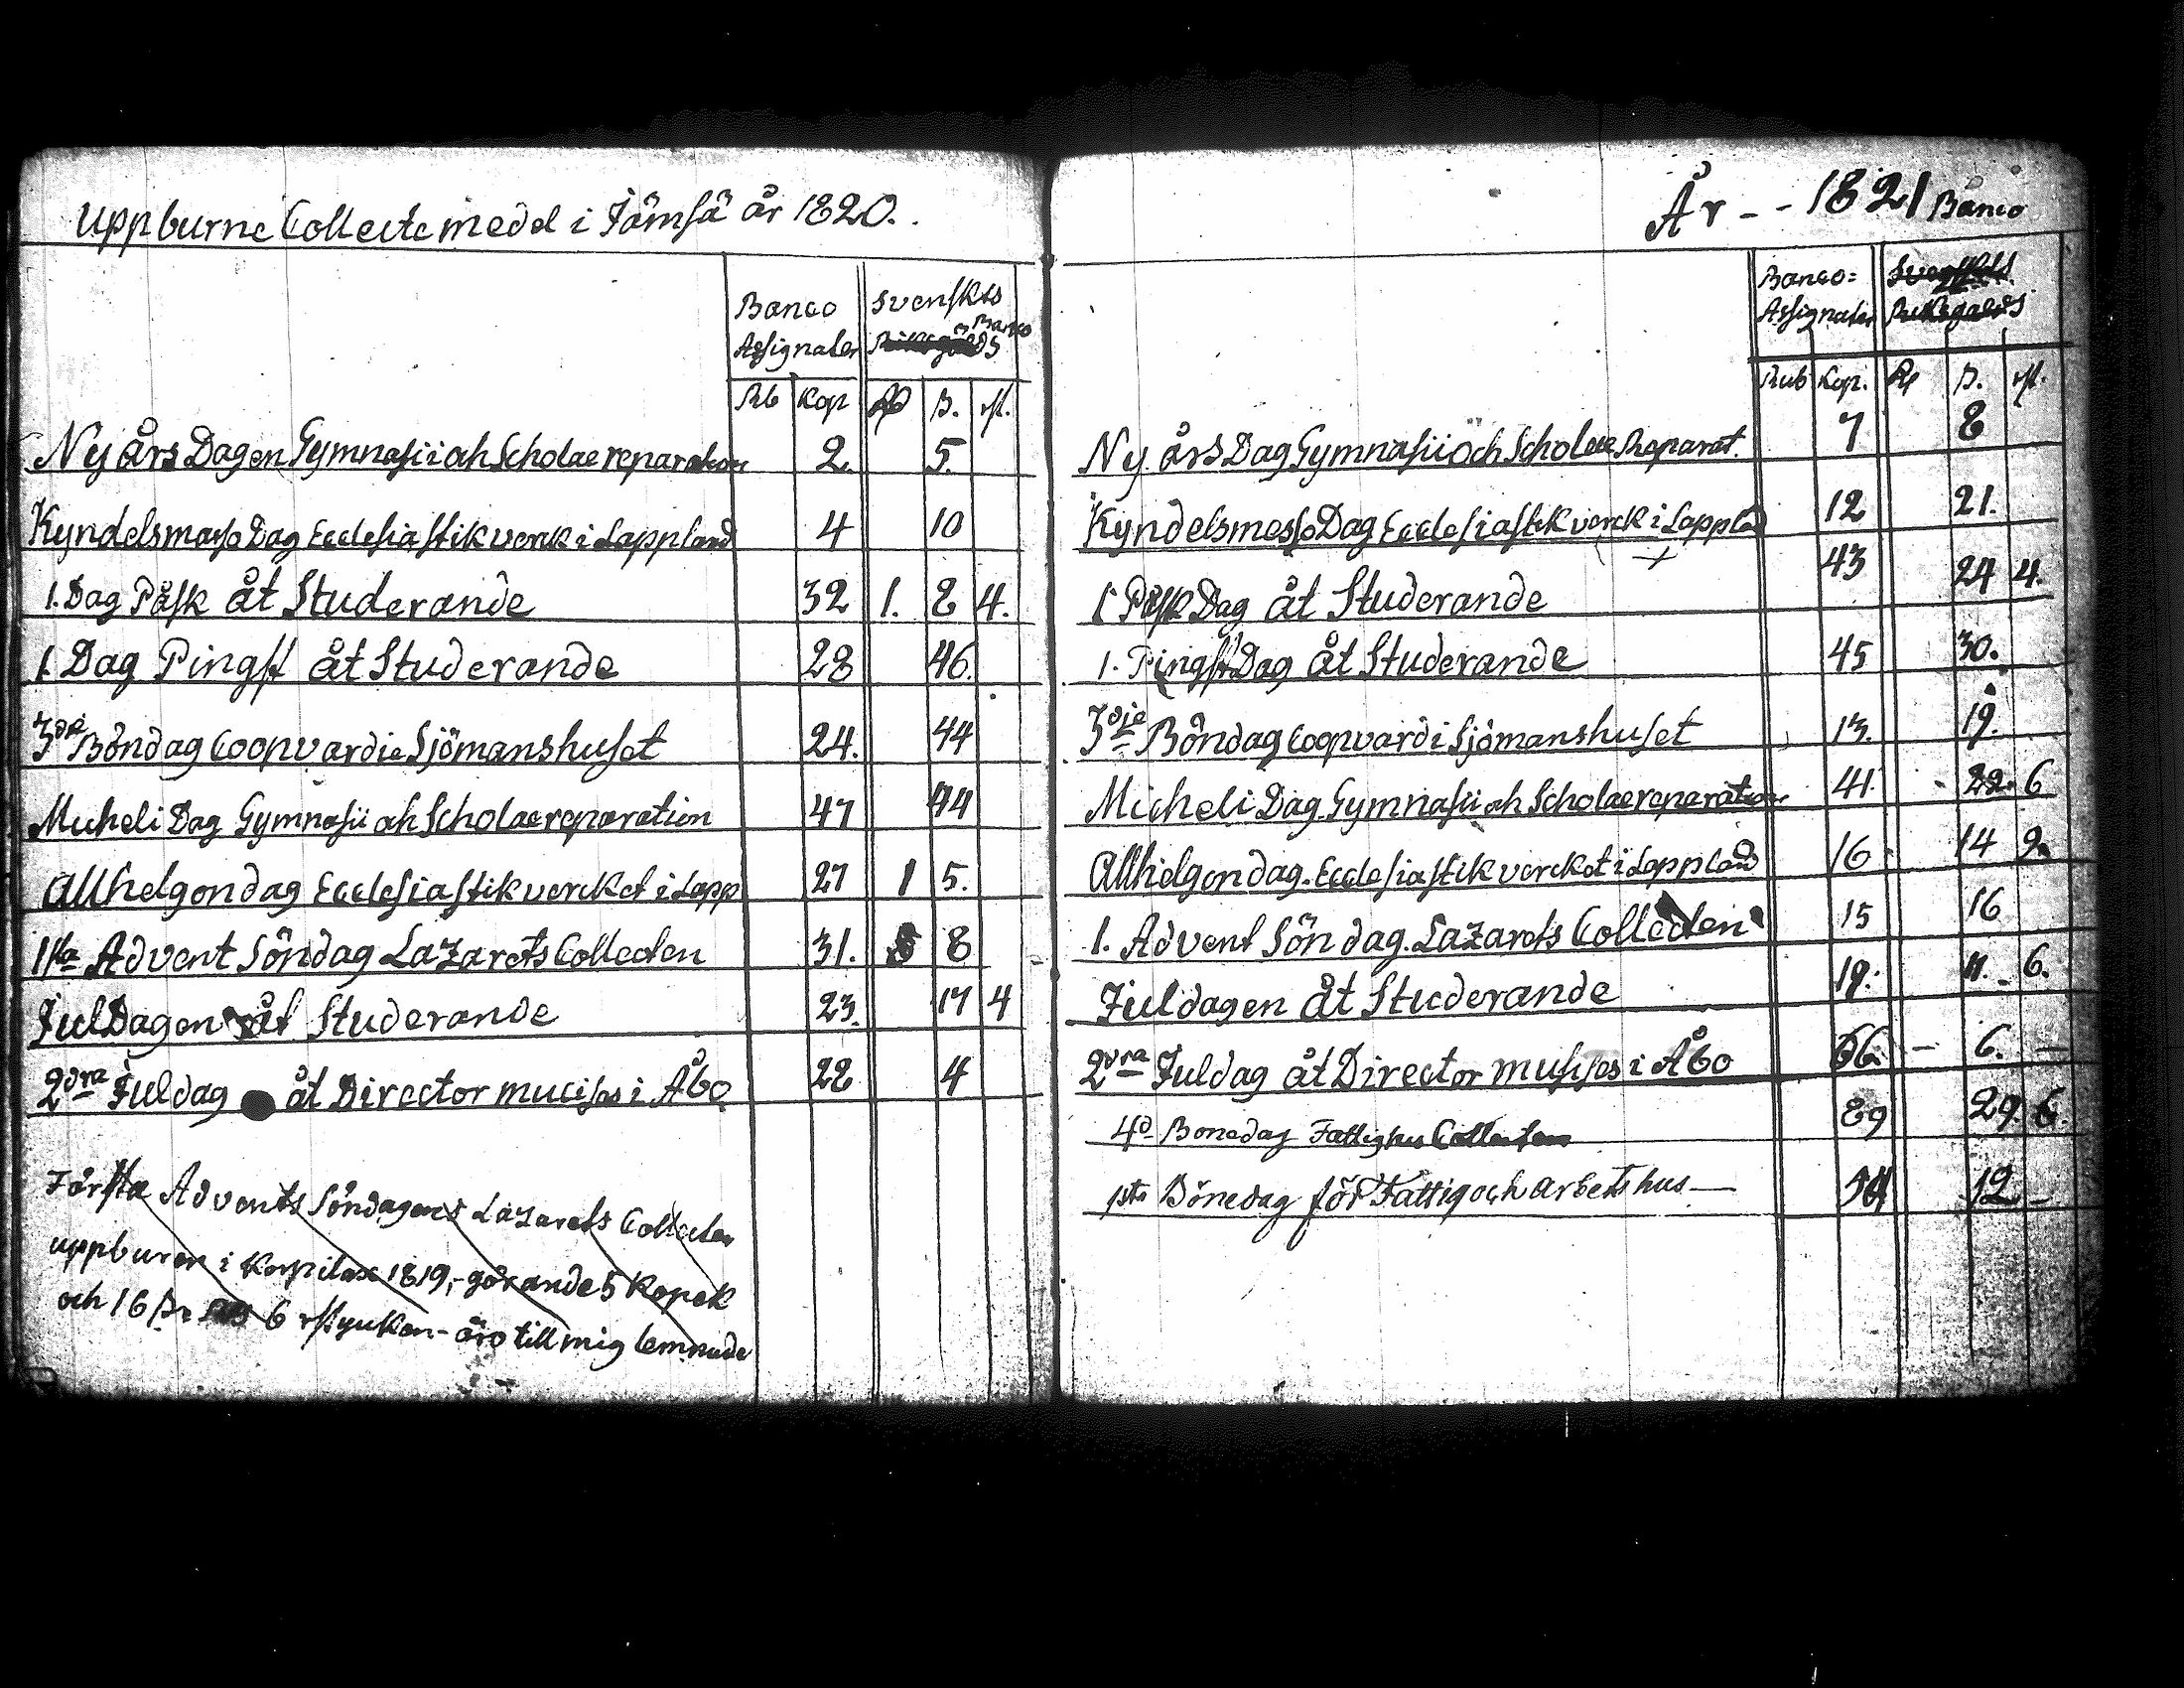 Uppburne Collecte medel i Jämsä år 1820.
Banco Svenskts
Assignater Riksgälds Banco
Rb Kop B. rst.
Ny års Dagen Gymnasii och Scholae reparation 2. 5.
Kyndelsmässo Dag Ecclesiastik verk i Lappland 4 10
1. Dag Påsk åt Studerande 32 1. 8 4.
1. Dag Pingst åt Studerande 28 46.
3die Böndag Coopvardie Sjömanshuset 24. 44
Micheli Dag Gymnasii och Scholae reparation 47 44
Allhelgondag Ecclesiastik verket i Lapp 27 1 5.
1sta Advent Söndag Lazarets Collecten 31. 8
JulDagen åt Studerande 23. 17 4
2dra Juldag åt Director mucises i Åbo 28 4
Första Advents Söndagens Lazarets Collecten
uppburen i Korpilax 1819,- görande 5 Kopek
och 16 6 rstycken - äro till mig lemnade
År - - 1821 Banco
Banco= Svenskts
Assignater Riksgälds
Rub Kop. B. rst.
Ny års Dag Gymnasii och Scholae Reparat. 7 8
Kyndelsmesso Dag Ecclesiastik verck i Lappld 12 21.
1 Påsk Dag åt Studerande 43 24 4.
1. Pingst Dag åt Studerande 45 30.
3dje Böndag Coopvardi Sjömanshuset 13. 19.
Micheli Dag Gymnasii och Scholae reparation 41. 22. 6
Allhelgondag. Ecclesiastik vercket i Lappland 16 14 9.
1. Advent Söndag. Lazarets Collecten 15 16
Juldagen åt Studerande 18. 11. 6.
2dra Juldag åt Director musises i Åbo 66. - 6. -
4d Bonedag Fattighus Collecten 89 29. 6.
1sta Bönedag för Fattig och Arbetshus - 12 -